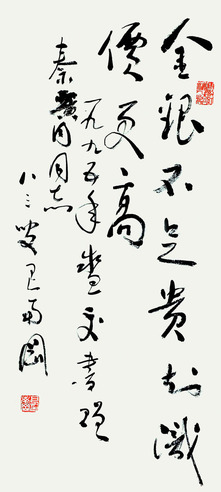 金银不足贵知识
价更高
一九九五年整交书理
秦广闰同志
八三叟